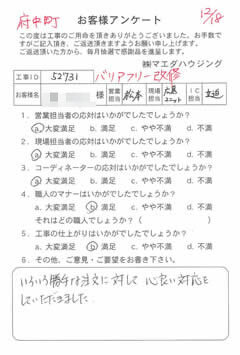 府中町 お客様アンケート 12/18
この度は工事のご用命を頂きありがとうございました。お手数で
すがご記入頂き、ご返送頂きますようお願い申し上げます。
ご返送頂いた方から、毎月抽選で感謝品を進呈します。
㈱マエダハウジング
工事ID 52731 バリアフリー改修
お客様名 様 営業担当 松本 現場担当 広島ユニット IC担当
1. 営業担当者の応対はいかがでしたでしょうか？
a.大変満足 b.満足 c.やや不満 d.不満
2. 現場担当者の応対はいかがでしたでしょうか？
a.大変満足 b.満足 c.やや不満 d.不満
3. コーディネーターの応対はいかがでしたでしょうか？
a.大変満足 b.満足 c.やや不満 d.不満
4. 職人のマナーはいかがでしたでしょうか？
a.大変満足 b.満足 c.やや不満 d.不満
それはどの職人でしょうか？（ ）
5. 工事の仕上がりはいかがでしたでしょうか？
a.大変満足 b.満足 c.やや不満 d.不満
6. その他、ご意見・ご要望をお書き下さい。
いろいろ勝手な注文に対して 心良い対応を
していただきました。